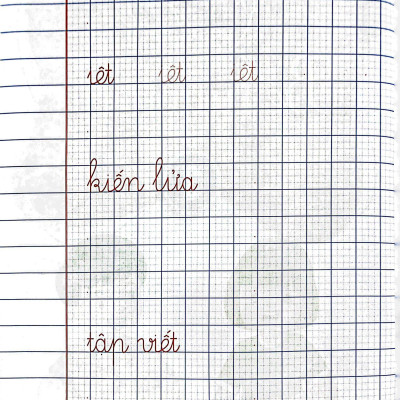 iêt iêt iêt
kiến lửa
tận viết